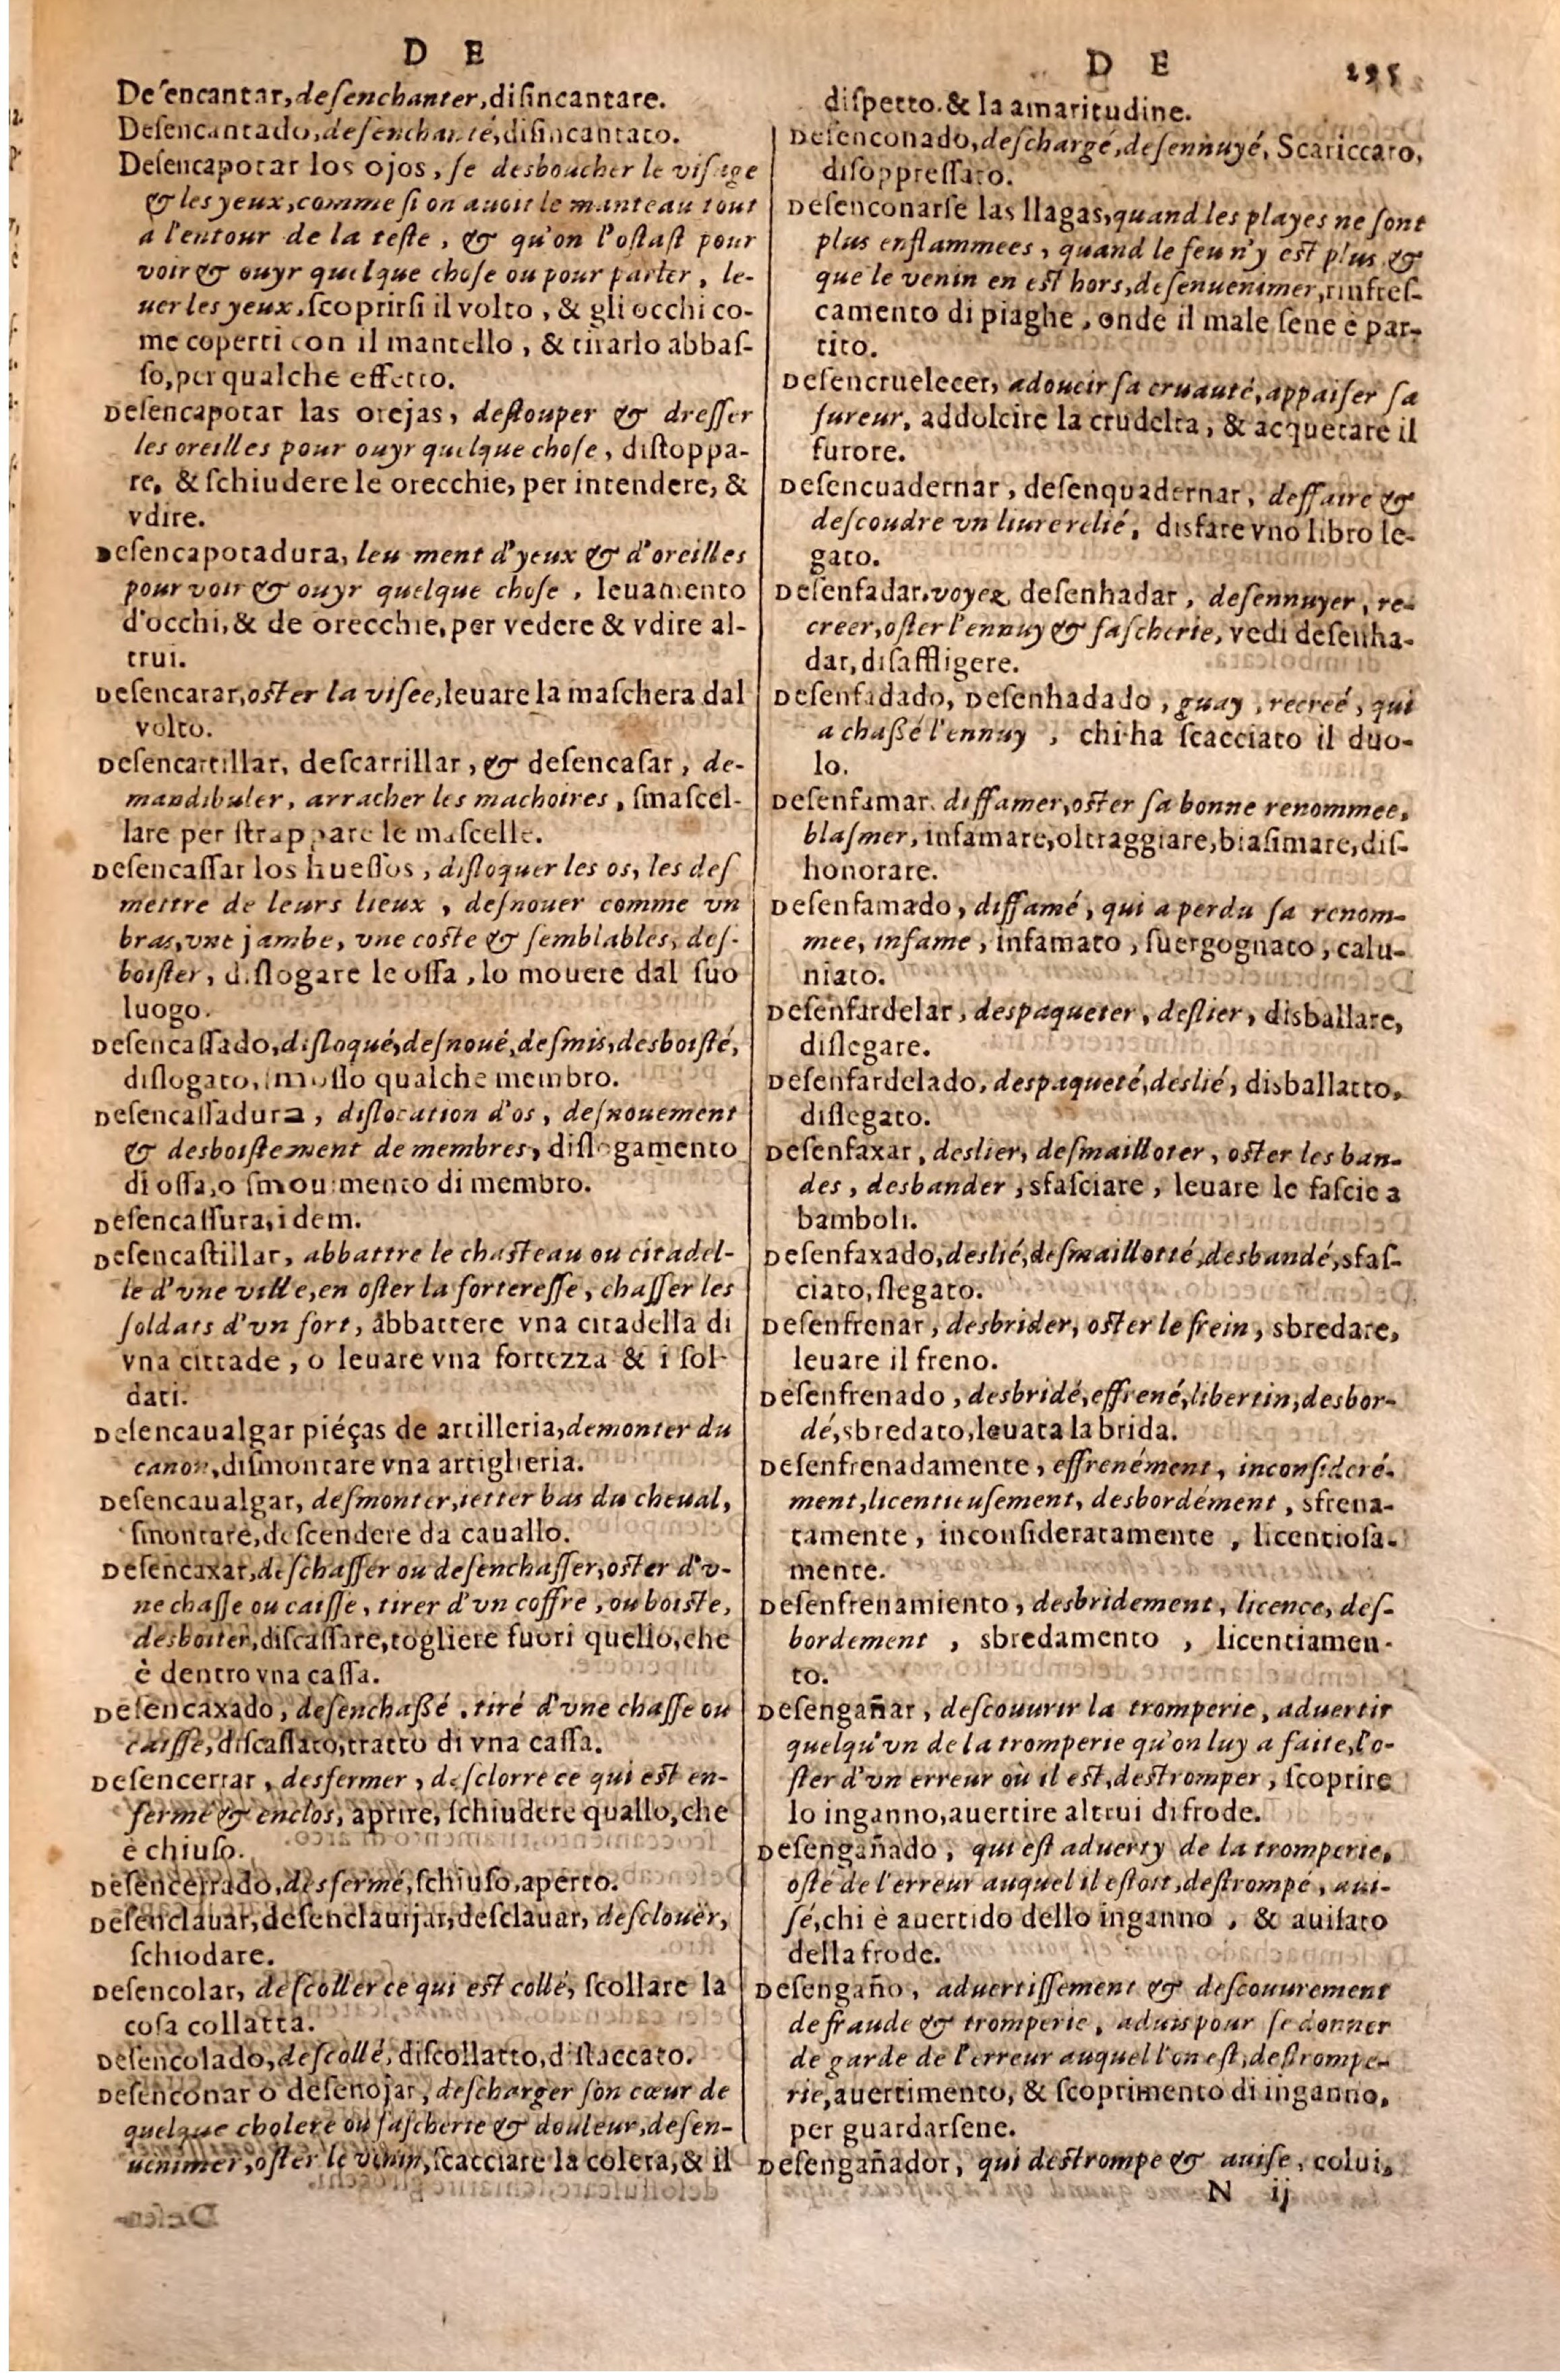 D E
Deſencantar, deſenchanter, diſincantare.
Deſencantado, deſenchanté, diſincantato.
Deſencapotar los ojos, ſe desboucher le viſage
& les yeux, comme ſi on auoit le manteau tout
a l'entour de la teſte, & qu'on l'oſtaſt pour
voir & ouyr quelque choſe ou pour parler, le-
uer les yeux, ſcoprirſi il volto, & gli occhi co-
me coperti con il mantello, & tirarlo abbaſ-
ſo, per qualche effetto.
Deſencapotar las orejas, deſtouper & dreſſer
les oreilles pour ouyr quelque choſe, diſtoppa-
re, & ſchiudere le orecchie, per intendere, &
vdire.
Deſencapotadura, leu ment d'yeux & d'oreilles
pour voir & ouyr quelque choſe, leuamento
d'occhi, & de orecchie, per vedere & vdire al-
trui.
Deſencarar, oſter la viſee, leuare la maſchera dal
volto.
Deſencartillar, deſcarrillar, & deſencaſar, de-
mandibuler, arracher les machoires, ſmaſcel-
lare per ſtrappare le maſcelle.
Deſencaſſar los hueſſos, diſloquer les os, les deſ
mettre de leurs lieux, deſnouer comme vn
bras, vne jambe, vne coſte & ſemblables, deſ-
boiſter, diſlogare le oſſa, lo mouere dal ſuo
luogo.
Deſencaſſado, diſloqué, deſnoué, deſmis, desboiſté,
diſlogato, ſmoſſo qualche membro.
Deſencaſſadura, diſlocation d'os, deſnouement
& desboiſtement de membres, diſlogamento
di oſſa, o ſmouimento di membro.
Deſencaſſura, idem.
Deſencaſtillar, abbattre le chaſteau ou citadel-
le d'vne ville, en oſter la fortereſſe, chaſſer les
ſoldats d'vn fort, abbattere vna citadella di
vna cittade, o leuare vna fortezza & i ſol-
dati.
Deſencaualgar piéças de artilleria, demonter du
canon, diſmontare vna artiglieria.
Deſencaualgar, deſmonter, ietter bas du cheual,
ſmontare, deſcendere da cauallo.
Deſencaxar, deſchaſſer ou deſenchaſſer, oſter d'v-
ne chaſſe ou caiſſe, tirer d'vn coffre, ou boiſte,
desboiter, diſcaſſare, togliere fuori quello, che
è dentro vna caſſa.
Deſencaxado, deſenchaßé, tiré d'vne chaſſe ou
caiſſe, diſcaſſato, tratto di vna caſſa.
Deſencerrar, desfermer, deſclorre ce qui eſt en-
fermé & enclos, aprire, ſchiudere quallo, che
è chiuſo.
Deſencerrado, desfermé, ſchiuſo, aperto.
Deſenclauar, deſenclauijar, deſclauar, deſclouër,
ſchiodare.
Deſencolar, deſcoller ce qui eſt collé, ſcollare la
coſa collatta.
Deſencolado, deſcollé, diſcollatto, diſtaccato.
Deſenconar o deſenojar, deſcharger ſon cœur de
quelque cholere ou faſcherie & douleur, deſen-
uenimer, oſter le vinin, ſcacciare la colera, & il
D E 295
diſpetto. & la amaritudine.
Deſenconado, deſchargé, deſennuyé, Scariccato,
diſoppreſſato.
Deſenconarſe las llagas, quand les playes ne ſont
plus enflammees, quand le feu n'y eſt plus &
que le venin en eſt hors, deſenuenimer, rinfreſ-
camento di piaghe, onde il male ſene è par-
tito.
Deſencruelecer, adoucir ſa cruauté, appaiſer ſa
fureur, addolcire la crudelta, & acquetare il
furore.
Deſencuadernar, deſenquadernar, deffaire &
deſcoudre vn liure relié, disfare vno libro le-
gato.
Deſenfadar, voyez deſenhadar, deſennuyer, re-
creer, oſter l'ennuy & faſcherie, vedi deſenha-
dar, diſaffligere.
Deſenfadado, Deſenhadado, guay, recreé, qui
a chaßé l'ennuy, chi ha ſcacciato il duo-
lo.
Deſenfamar, diffamer, oſter ſa bonne renommee,
blaſmer, infamare, oltraggiare, biaſimare, diſ-
honorare.
Deſenfamado, diffamé, qui a perdu ſa renom-
mee, infame, infamato, ſuergognato, calu-
niato.
Deſenfardelar, despaqueter, deſlier, disballare,
diſlegare.
Deſenfardelado, despaqueté, deslié, disballatto,
diſlegato.
Deſenfaxar, deslier, deſmailloter, oſter les ban-
des, desbander, sfaſciare, leuare le faſcie a
bamboli.
Deſenfaxado, deslié, deſmaillotté, desbandé, sfaſ-
ciato, ſlegato.
Deſenfrenar, desbrider, oſter le frein, sbredare,
leuare il freno.
Deſenfrenado, desbridé, effrené, libertin, desbor-
dé, sbredato, leuata la brida.
Deſenfrenadamente, effrenément, inconſideré-
ment, licentieuſement, desbordément, sfrena-
tamente, inconſideratamente, licentioſa-
mente.
Deſenfrenamiento, desbridement, licence, deſ-
bordement, sbredamento, licentiamen-
to.
Deſengañar, deſcouurir la tromperie, aduertir
quelqu'vn de la tromperie qu'on luy a faite, l'o-
ſter d'vn erreur où il eſt, deſtromper, ſcoprire
lo inganno, auertire altrui di frode.
Deſengañado, qui eſt aduerty de la tromperie,
oſté de l'erreur auquel il eſtoit, deſtrompé, aui-
ſé, chi è auertido dello inganno, & auiſato
della frode.
Deſengaño, aduertiſſement & deſcouurement
de fraude & tromperie, aduis pour ſe donner
de garde de l'erreur auquel l'on eſt, deſtrompe-
rie, auertimento, & ſcoprimento di inganno,
per guardarſene.
Deſengañador, qui deſtrompe & auiſe, colui,
N ij